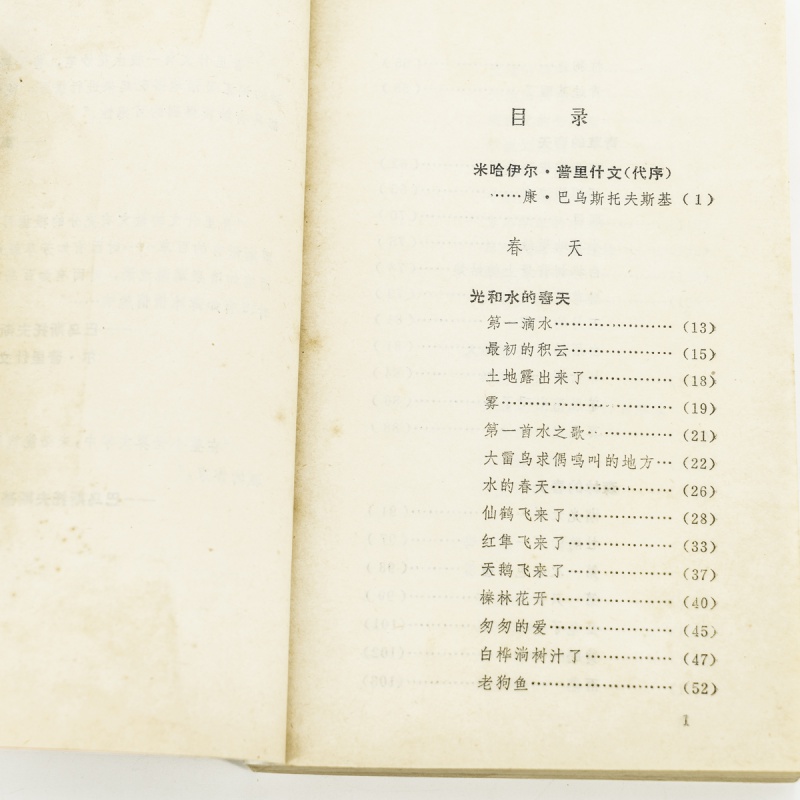 目 录
米哈伊尔·普里什文(代序)
……康·巴乌斯托夫斯基(1)
春 天
光和水的春天
第一滴水…………………(13)
最初的积云………………(15)
土地露出来了……………(18)
雾…………………………(19)
第一首水之歌……………(21)
大雷鸟求偶鸣叫的地方…(22)
水的春天…………………(26)
仙鹤飞来了………………(28)
红隼飞来了………………(33)
天鹅飞来了………………(37)
榛林花开…………………(40)
匆匆的爱…………………(45)
白桦淌树汁了……………(47)
老狗鱼……………………(52)
1